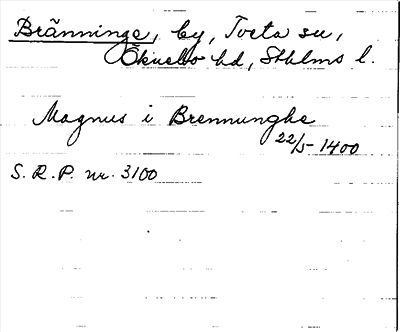 Bränninge, by, Tveta sn,
Öknebo hd, Sthlms l.
Magnus i Brennunghe
22/5 1400
S. R. P. nr. 3100